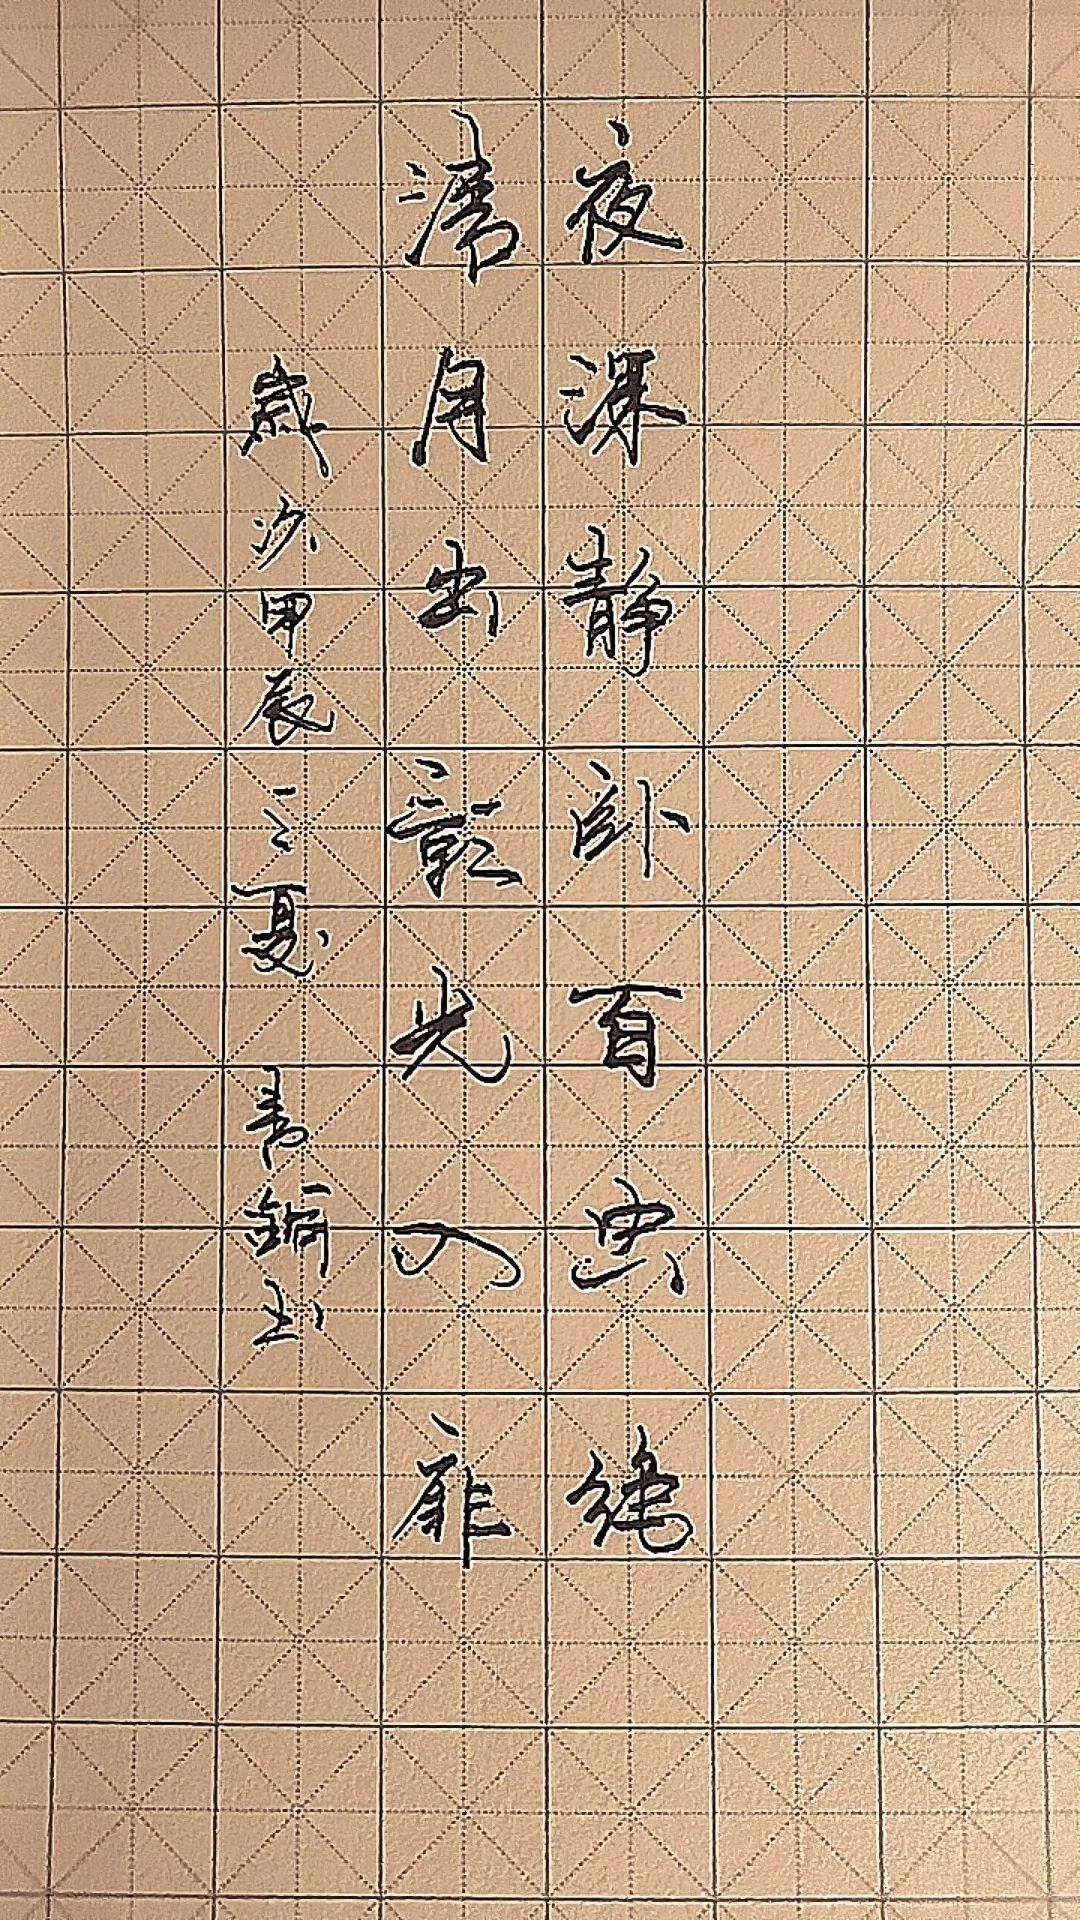 夜深静卧百虫绝
清月出嶺光入扉
歲次甲辰之夏 青銅书